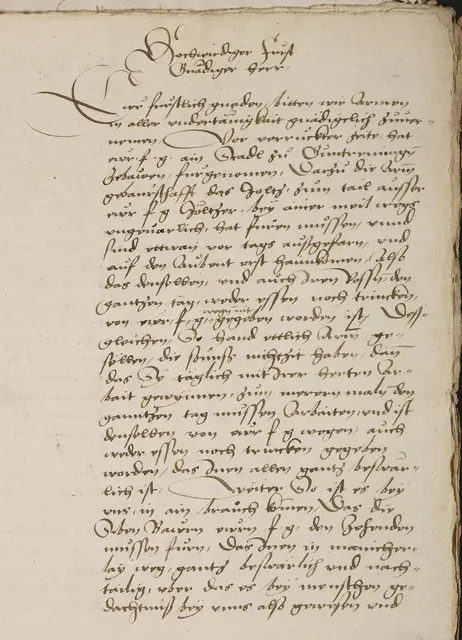 Hochwirdiger Furst
Gnädiger herr
Ewr furstlich gnaden, bitten wir Armen
in aller underteunigkait gnädigclich zuver-
nemen, Vor verruckter Zeit hat
eur f. g. ain Stadl zu
zebawen furgenomen, Darzu die Arm
gebaurschafft das Holtz zum tail ausser
eur f. g. Höltzer, bey ainer meil wegs
ungeuarlich, hat fueren muessen, unnd
sind ettwan vor tags ausgefarn, und
auf den Aubent erst haimkomen, Also
das denselben, und auch Iren Rossen, den
gantzen tag, weder essen noch trincken,
von ewr f. g. wegen nit gegeben worden ist, Des-
gleichen, So hand ettlich Arm ge-
sellen, die sounst nichtzit haben, dann
das Sy täglich mit Irer herten Ar-
bait gewynnen, zum merern maln den
ganntzen tag muessen Arbaiten, und ist
denselben von eur f. g. wegen, auch
weder essen noch trincken gegeben
worden, das Inen allen gantz beswär-
lich ist, Weiter So ist es bey
uns, in ain brauch komen, Das die
Siben Bauren ewrn f. g. den Zehenden
muessen furn, Das Inen in manicher-
lay weg, gantz beswärlich und nach-
tailig, uber das es bey menschen ge-
dächtnis bey unns also gewesen und